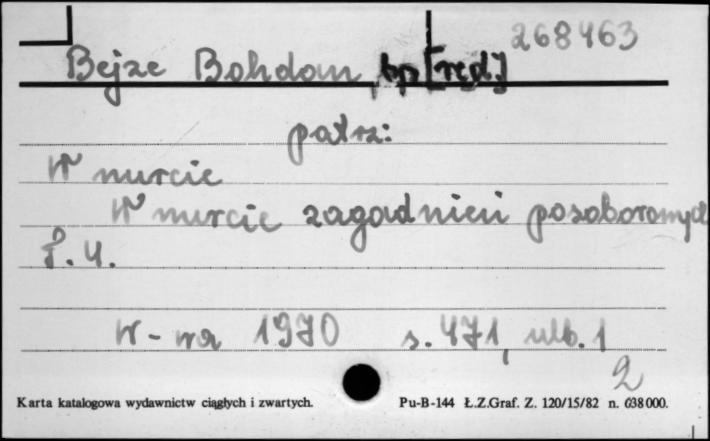 268463
Bejze Bohdan, bp [red.]
patrz:
W nurcie
W nurcie zagadnień posoborowych
T. 4.
W-wa 1970 s. 471, ulb. 1
2
Karta katalogowa wydawnictw ciągłych i zwartych. Pu-B-144 Ł.Z.Graf. Z. 120/15/82 n. 638000.